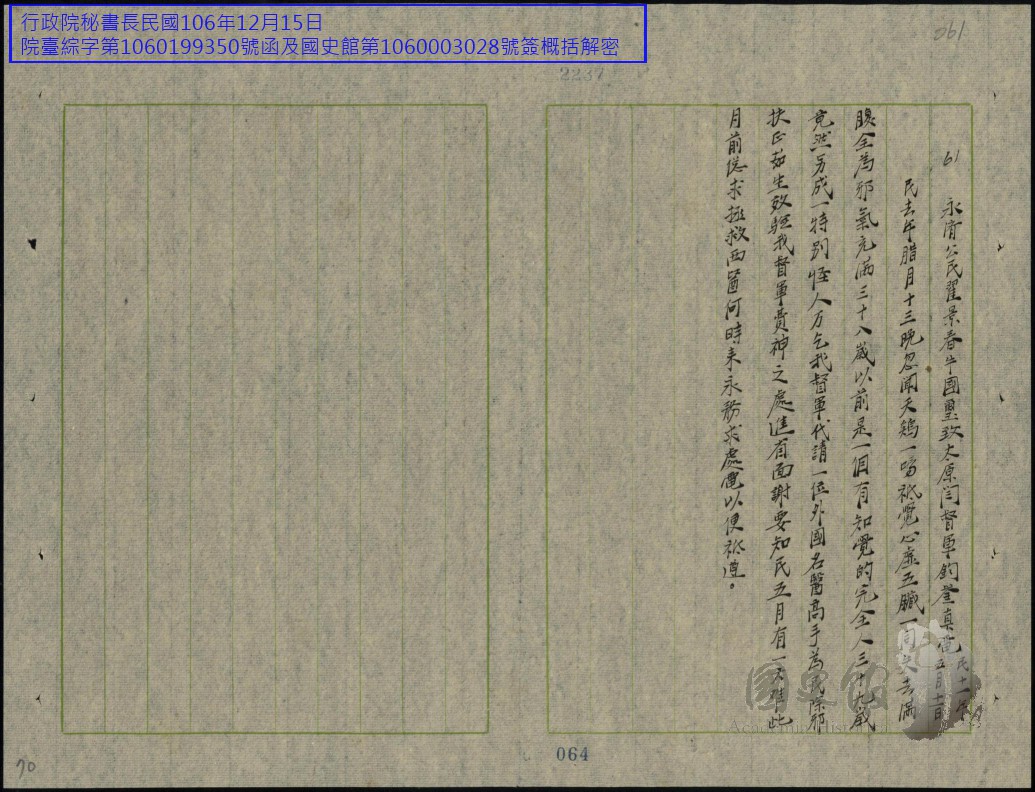 行政院秘書長民國106年12月15日
院臺綜字第1060199350號函及國史館第1060003028號簽概括解密
061
2237
61
永濟公民翟景春牛國璽致太原閻督軍鈞鑒真電 民十一年 五月十一日
民去年腊月十三晚忽聞天鷄一鳴祗覺心虛五臟一同失去滿
腹全為邪氣充滿三十八歲以前是一個有知覺的完全人三十九歲
竟然另成一特別怪人万乞我督軍代請一位外國名醫高手為民除邪
扶正如生效驗我督軍費神之處進省面謝要知民五月有一災難此
月前恳求拯救西醫何時来永務求處電以便祗遵。
國史館
Academia Historica
064
70